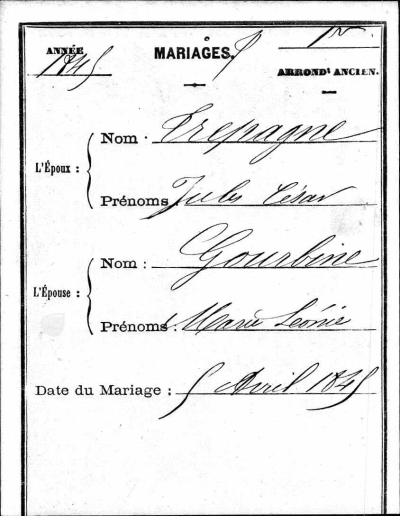 ANNÉE MARIAGES. 1er
1845 ARRONDt ANCIEN.
Nom : Trepagne
L'Époux :
Prénoms Jules César
Nom : Gourbine
L'Épouse :
Prénoms : Marie Léonie
Date du Mariage : 5 Avril 1845